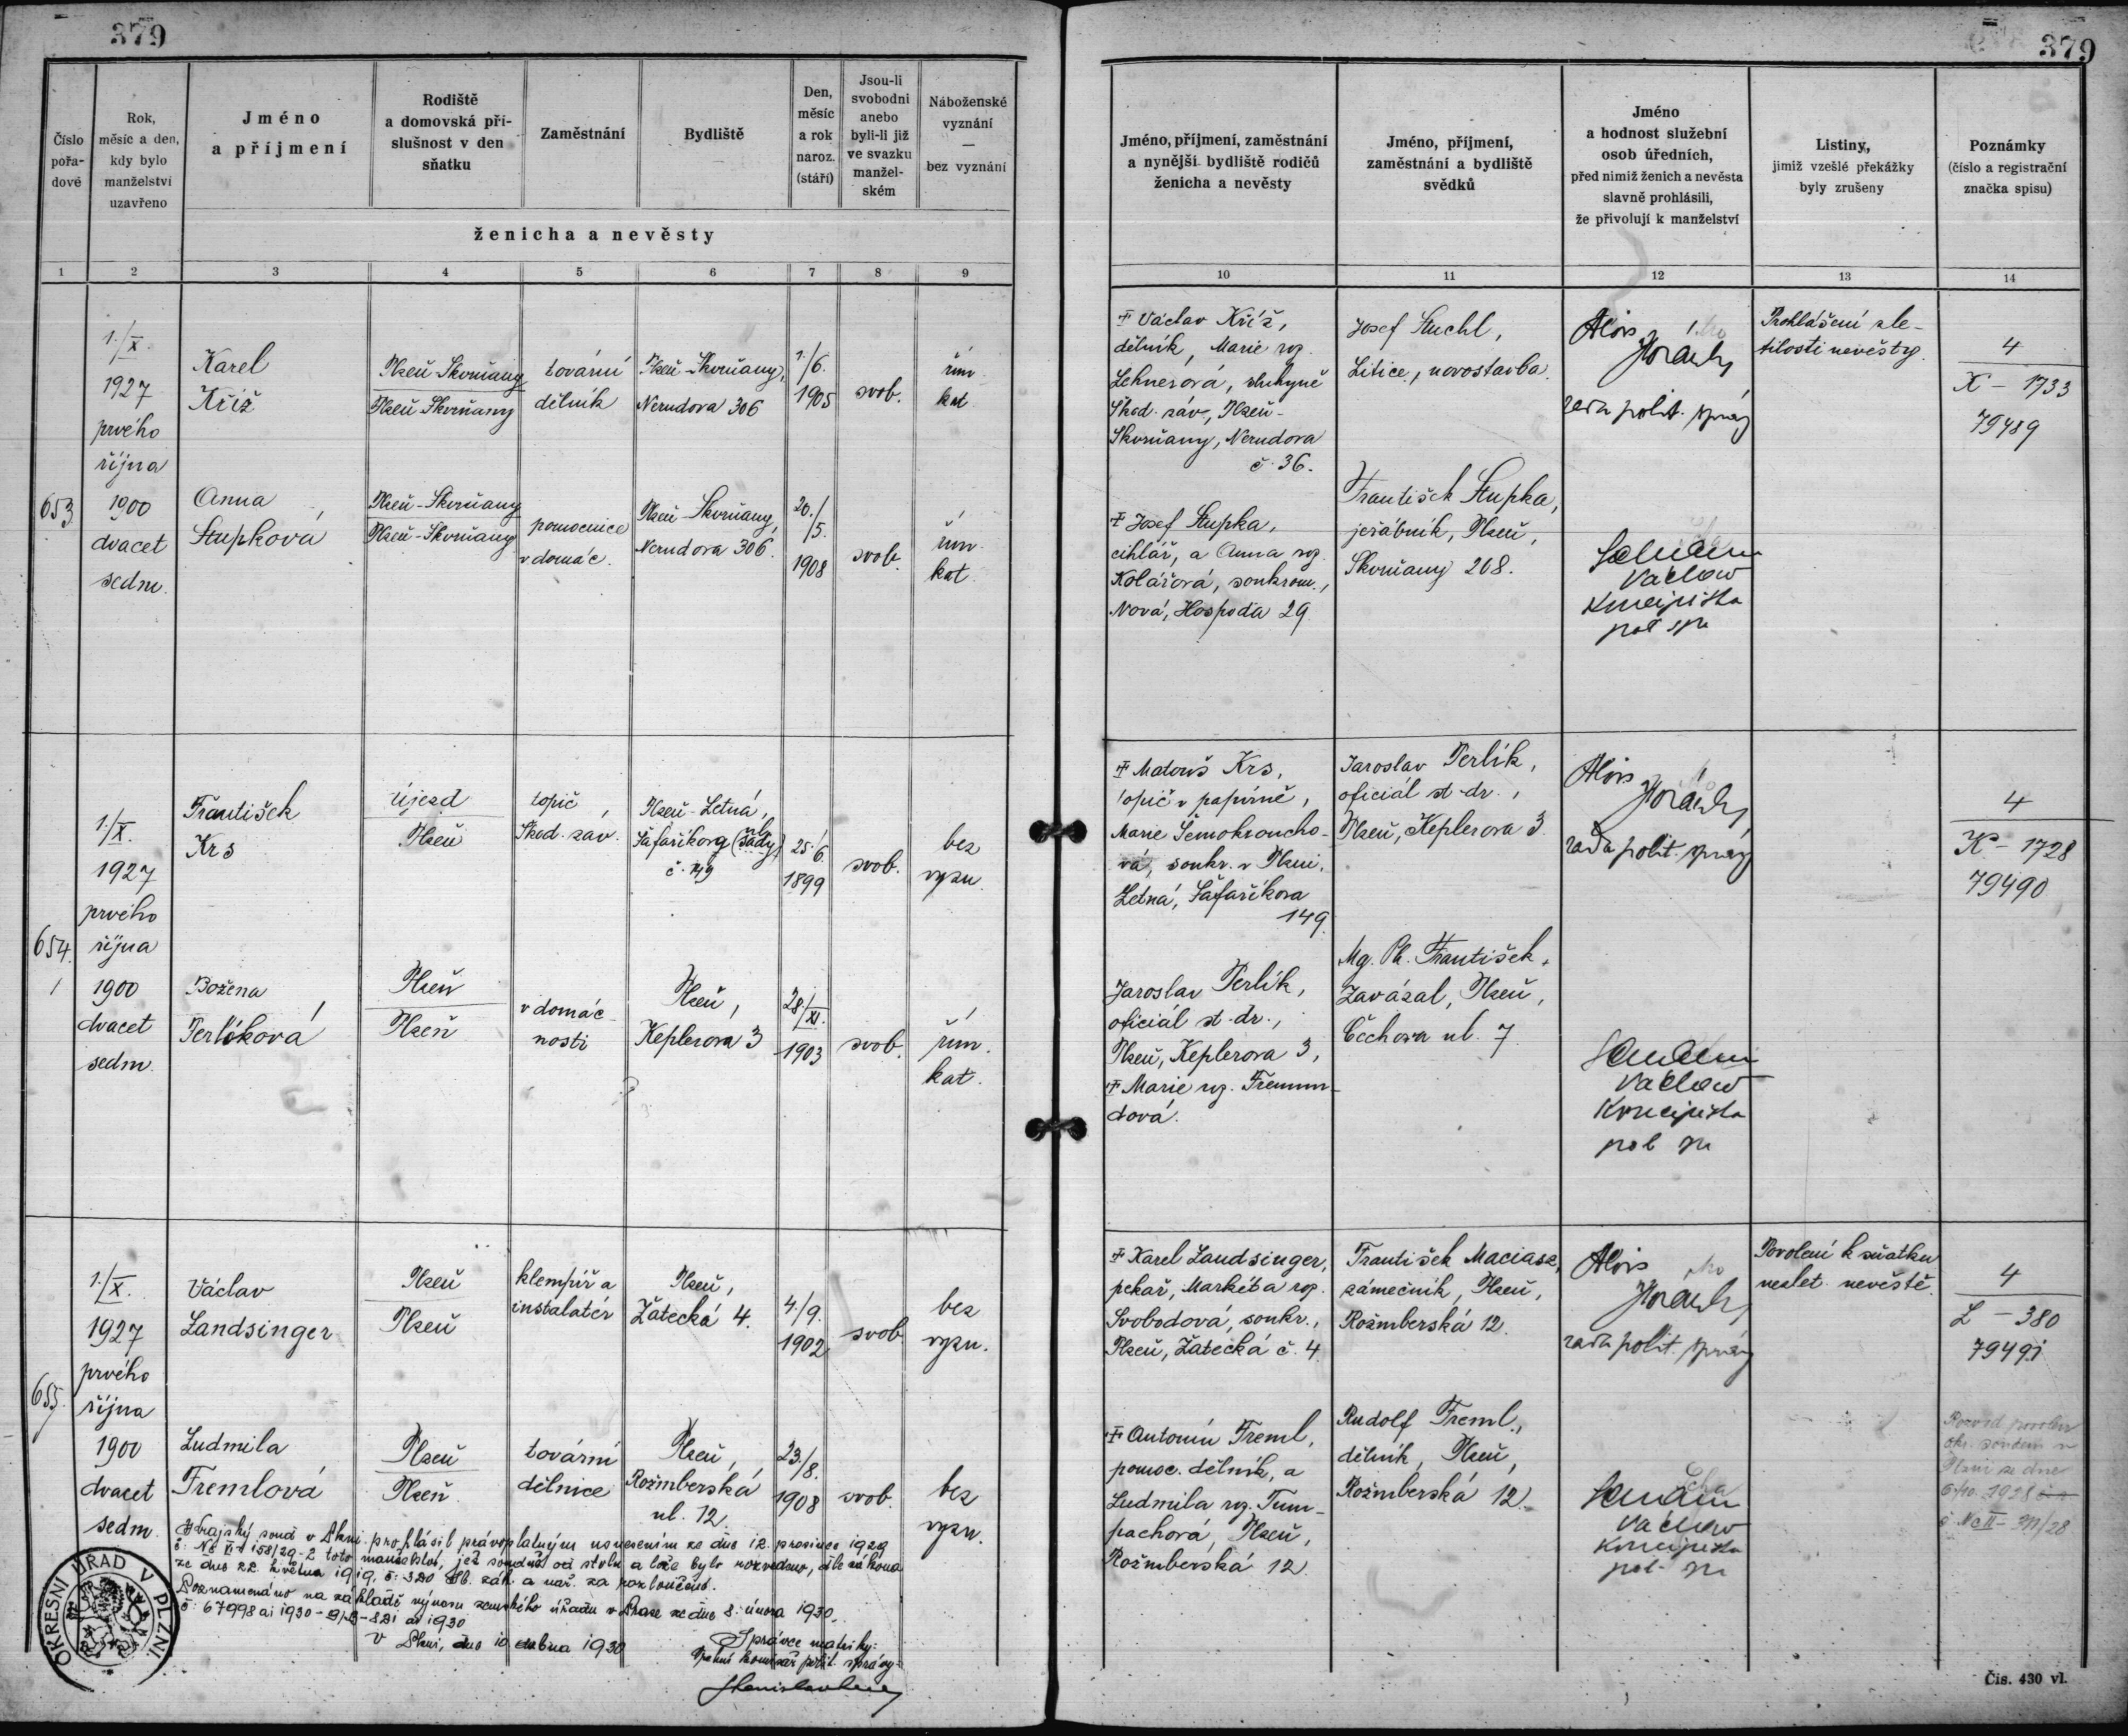 379
379
Číslo pořadové
Rok, měsíc a den, kdy bylo manželství uzavřeno
Jméno a příjmení
Rodiště a domovská příslušnost v den sňatku
Zaměstnání
Bydliště
Den, měsíc a rok naroz. (stáří)
Jsou-li svobodni anebo byli-li již ve svazku manželském
Náboženské vyznání — bez vyznání
ženicha a nevěsty
Jméno, příjmení, zaměstnání a nynější bydliště rodičů ženicha a nevěsty
Jméno, příjmení, zaměstnání a bydliště svědků
Jméno a hodnost služební osob úředních, před nimiž ženich a nevěsta slavně prohlásili, že přivolují k manželství
Listiny, jimiž vzešlé překážky byly zrušeny
Poznámky (číslo a registrační značka spisu)
1 2 3 4 5 6 7 8 9 10 11 12 13 14
653
1./X.
1927
prvého
října
1900
dvacet
sedm.
Karel
Kříž
Plzeň-Skvrňany
Plzeň Skvrňany
tovární
dělník
Plzeň-Skvrňany,
Nerudova 306
1./6.
1905
svob.
řím.
kat.
Anna
Stupková
Plzeň-Skvrňany
Plzeň-Skvrňany
pomocnice
v domác.
Plzeň-Skvrňany,
Nerudova 306.
20./5.
1908
svob.
řím.
kat.
Václav Kříž,
dělník, Marie roz.
Lehnerová,
Škod. záv., Plzeň-
Skvrňany, Nerudova
č. 36.
Josef Stupka,
cihlář, a Anna roz.
Kolářová, soukrom.,
Nová, Hospoda 29
Josef Stuchl,
Litice, novostavba.
František Stupka,
jeřábník, Plzeň,
Skvrňany 208.
Alois
Horák
rada polit. správy
Václav
koncipista
pol. spr
Prohlášení zle-
tilosti nevěsty.
4
K - 1733
79489
654.
1./X.
1927
prvého
října
1900
dvacet
sedm.
František
Krs
Újezd
Plzeň
topič
Škod. záv.
Plzeň-Letná,
Šafaříkovy (sady)
č. 149
25./6.
1899
svob.
bez
vyzn.
Božena
Perlíková
Plzeň
Plzeň
v domác-
nosti
Plzeň,
Keplerova 3
28./XI.
1903
svob.
řím.
kat.
Matouš Krs,
topič v papírně,
Marie Šemohroucho-
vá, soukr. v Plzni,
Letná, Šafaříkova
149.
Jaroslav Perlík,
oficiál st. dr.,
Plzeň, Keplerova 3,
Marie roz. Fremun-
dová.
Jaroslav Perlík,
oficiál st. dr.,
Plzeň, Keplerova 3.
Mg. Ph. František
Zavázal, Plzeň,
Čechova ul. 7.
Alois
Horák
rada polit. správy
Václav
koncipista
pol. spr
4
K - 1728
79490
655.
1./X.
1927
prvého
října
1900
dvacet
sedm.
Václav
Landsinger
Plzeň
Plzeň
klempíř a
instalatér
Plzeň,
Žatecká 4.
4./9.
1902
svob.
bez
vyzn.
Ludmila
Fremlová
Plzeň
Plzeň
tovární
dělnice
Plzeň,
Rožmberská
ul. 12.
23./8.
1908
svob.
bez
vyzn.
Karel Landsinger,
pekař, Markéta roz.
Svobodová, soukr.,
Plzeň, Žatecká č. 4.
Antonín Freml,
pomoc. dělník, a
Ludmila roz. Tum-
pachová, Plzeň,
Rožmberská 12
František Maciasz,
zámečník, Plzeň,
Rožmberská 12.
Rudolf Freml,
dělník, Plzeň,
Rožmberská 12.
Alois
Horák
rada polit. správy
Václav
koncipista
pol. spr
Povolení k sňatku
nezlet. nevěstě.
4
L - 380
79491
Rozvod povolen
okr. soudem v
Plzni ze dne
6./10. 1928
Krajský soud v Plzni prohlásil právoplatným usnesením ze dne 12. prosince 1929
č: Nc VI 158/29-2 toto manželství, jež soudně od stolu a lože bylo rozvedeno, dle zákona
ze dne 22. května 1919, č: 320 Sb. zák. a nař. za rozloučené.
Poznamenáno na základě výnosu zemského úřadu v Praze ze dne 8. února 1930,
č: 67998 ai 1930
V Plzni, dne 10 dubna 1930
Správce matriky:
komisař polit. správy:
OKRESNÍ ÚŘAD V PLZNI
Čís. 430 vl.